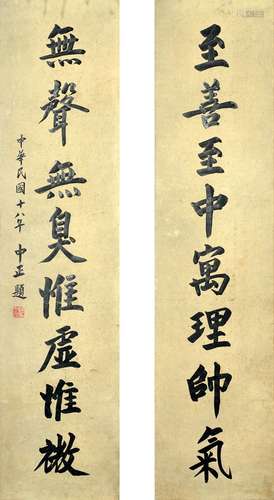 至善至中寓理帥氣
無聲無臭惟虛惟微
中華民國十八年
中正題